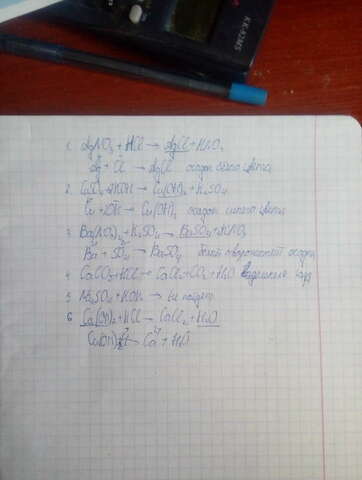 KK-82MS
1. AgNO₃ + HCl → AgCl + HNO₃
Ag + Cl → AgCl осадок белого цвета
2. CuSO₄ + KOH → Cu(OH)₂ + K₂SO₄
Cu + OH → Cu(OH)₂ осадок синего цвета
3 Ba(NO₃)₂ + K₂SO₄ → BaSO₄ + KNO₃
Ba + SO₄ → BaSO₄ белый творожистый осадок
4 CaCO₃ + HCl → CaCl₂ + CO₂ + H₂O
5 Na₂SO₄ + KOH → не пойдет
6 Ca(OH)₂ + HCl → CaCl₂ + H₂O
→ Ca + H₂O